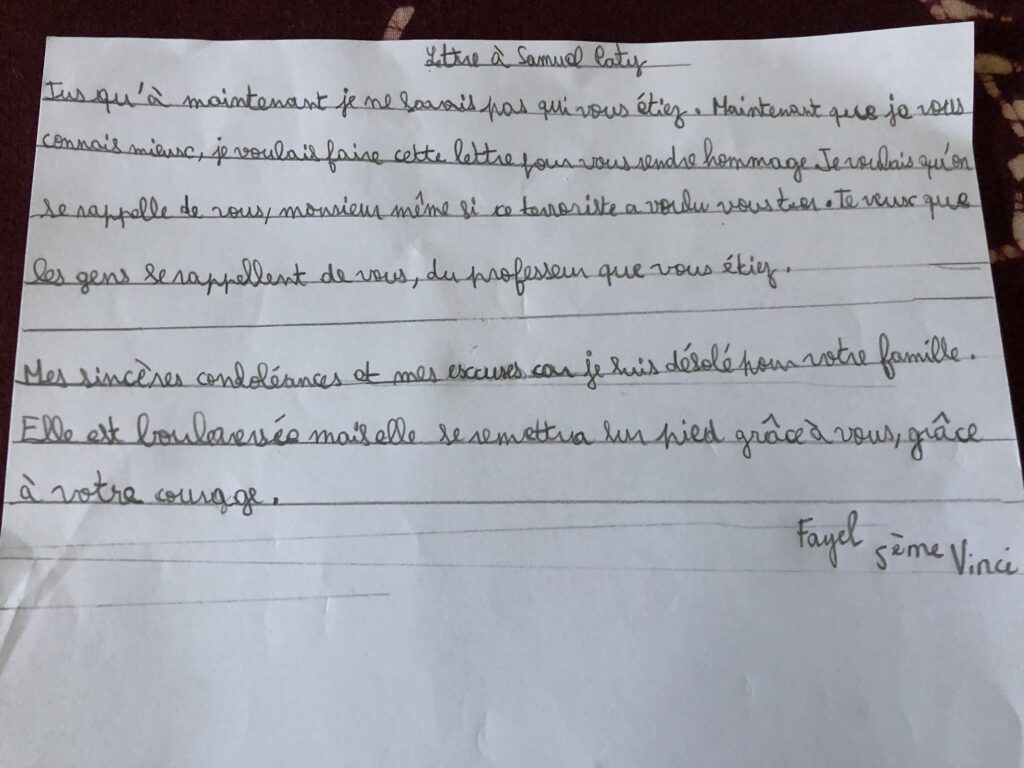 Lettre à Samuel Paty
Jusqu'à maintenant je ne savais pas qui vous étiez. Maintenant que je vous
connais mieux, je voulais faire cette lettre pour vous rendre hommage. Je voulais qu'on
se rappelle de vous, monsieur même si ce terroriste a voulu vous tuer. Je veux que
les gens se rappellent de vous, du professeur que vous étiez.
Mes sincères condoléances et mes excuses car je suis désolé pour votre famille.
Elle est bouleversée mais elle se remettra sur pied grâce à vous, grâce
à votre courage.
Fayel 5ème Vinci